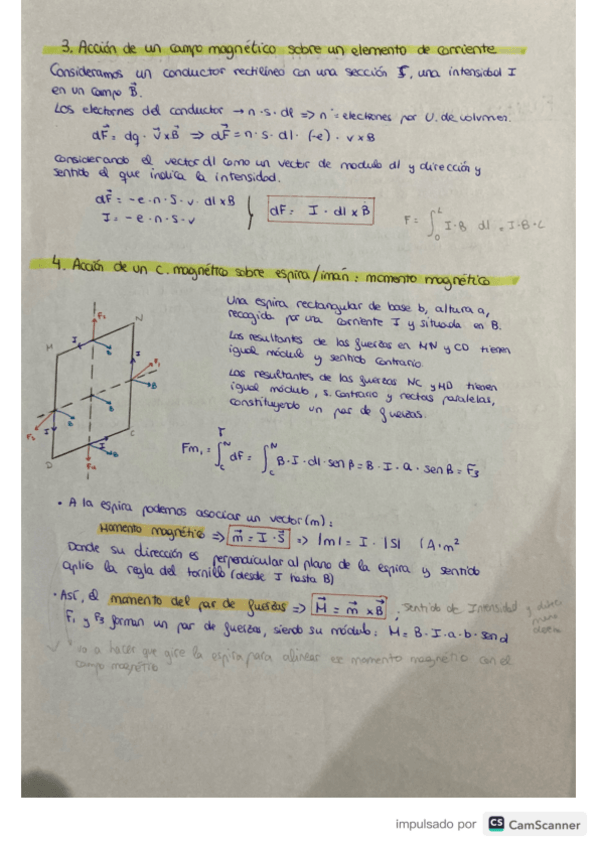 3. Acción de un campo magnético sobre un elemento de corriente
Consideramos un conductor rectilíneo con una sección S, una intensidad I
en un campo B⃗.
Los electornes del conductor → n·s·dl => nº electrones por U. de volumen.
dF⃗ = dq · v⃗ x B⃗ => dF⃗ = n·s·dl · (-e) · v x B
Considerando el vector dl como un vector de modulo dl y dirección y
sentido el que indica la intensidad.
dF⃗ = -e·n·S·v·dl x B
I = -e·n·s·v
dF = I · dl x B
F = ∫₀ᴸ I·B dl = I·B·L
4. Acción de un c. magnético sobre espira/imán: momento magnético
Una espira rectangular de base b, altura a,
recogida por una corriente I y situada en B.
Las resultantes de las fuerzas en MN y CD tienen
igual módulo y sentido contrario.
Las resultantes de las fuerzas NC y MD tienen
igual módulo, s. contrario y rectas paralelas,
constituyendo un par de fuerzas.
M
N
C
D
I
B
Fm₁ = ∫dF = ∫ B·I·dl·sen β = B·I·a·sen β = F₃
• A la espira podemos asociar un vector (m):
Momento magnético => m⃗ = I·S⃗ => |m| = I·|S| (A·m²
Donde su dirección es perpendicular al plano de la espira y sentido
aplico la regla del tornillo (desde I hasta B)
• Así, el momento del par de fuerzas => M⃗ = m⃗ x B⃗ , sentido de Intensidad y
F₁ y F₃ forman un par de fuerzas, siendo su módulo: M = B·I·a·b·send
va a hacer que gire la espira para alinear momento magnético con el
campo magnético
impulsado por CS CamScanner